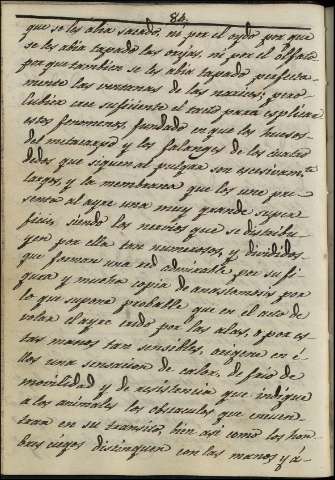 84.
que se les abia sacado, ni por el oydo por que
se les abia tapado las orejas, ni por el olfato
porque tambien se les abia tapado perfecta-
mente las ventanas de las narices; pero
Cubier cree suficiente el tacto para esplicar
estos fenomenos, fundado en que los huesos
del metacarpo y los falanges de los cuatro
dedos que siguen al pulgar son escesivamte
largos, y la membrana que los une pre-
senta al ayre una muy grande super
ficie, siendo los nervios que se distribu-
yen por ella tan numerosos, y divididos
que forman una red admirable por su fi-
gura y mucha copia de anastomosis por
lo que supone probable que en el acto de
volar el ayre erido por las alas, o por es-
tas manos tan sensibles, origene en é-
llos una sensacion de calor, de frio de
movilidad y de resistencia que indique
a los animales los obstaculos que encuen-
tran en su transito, bien asi como los hom
bres ciegos distinguen con las manos y á-